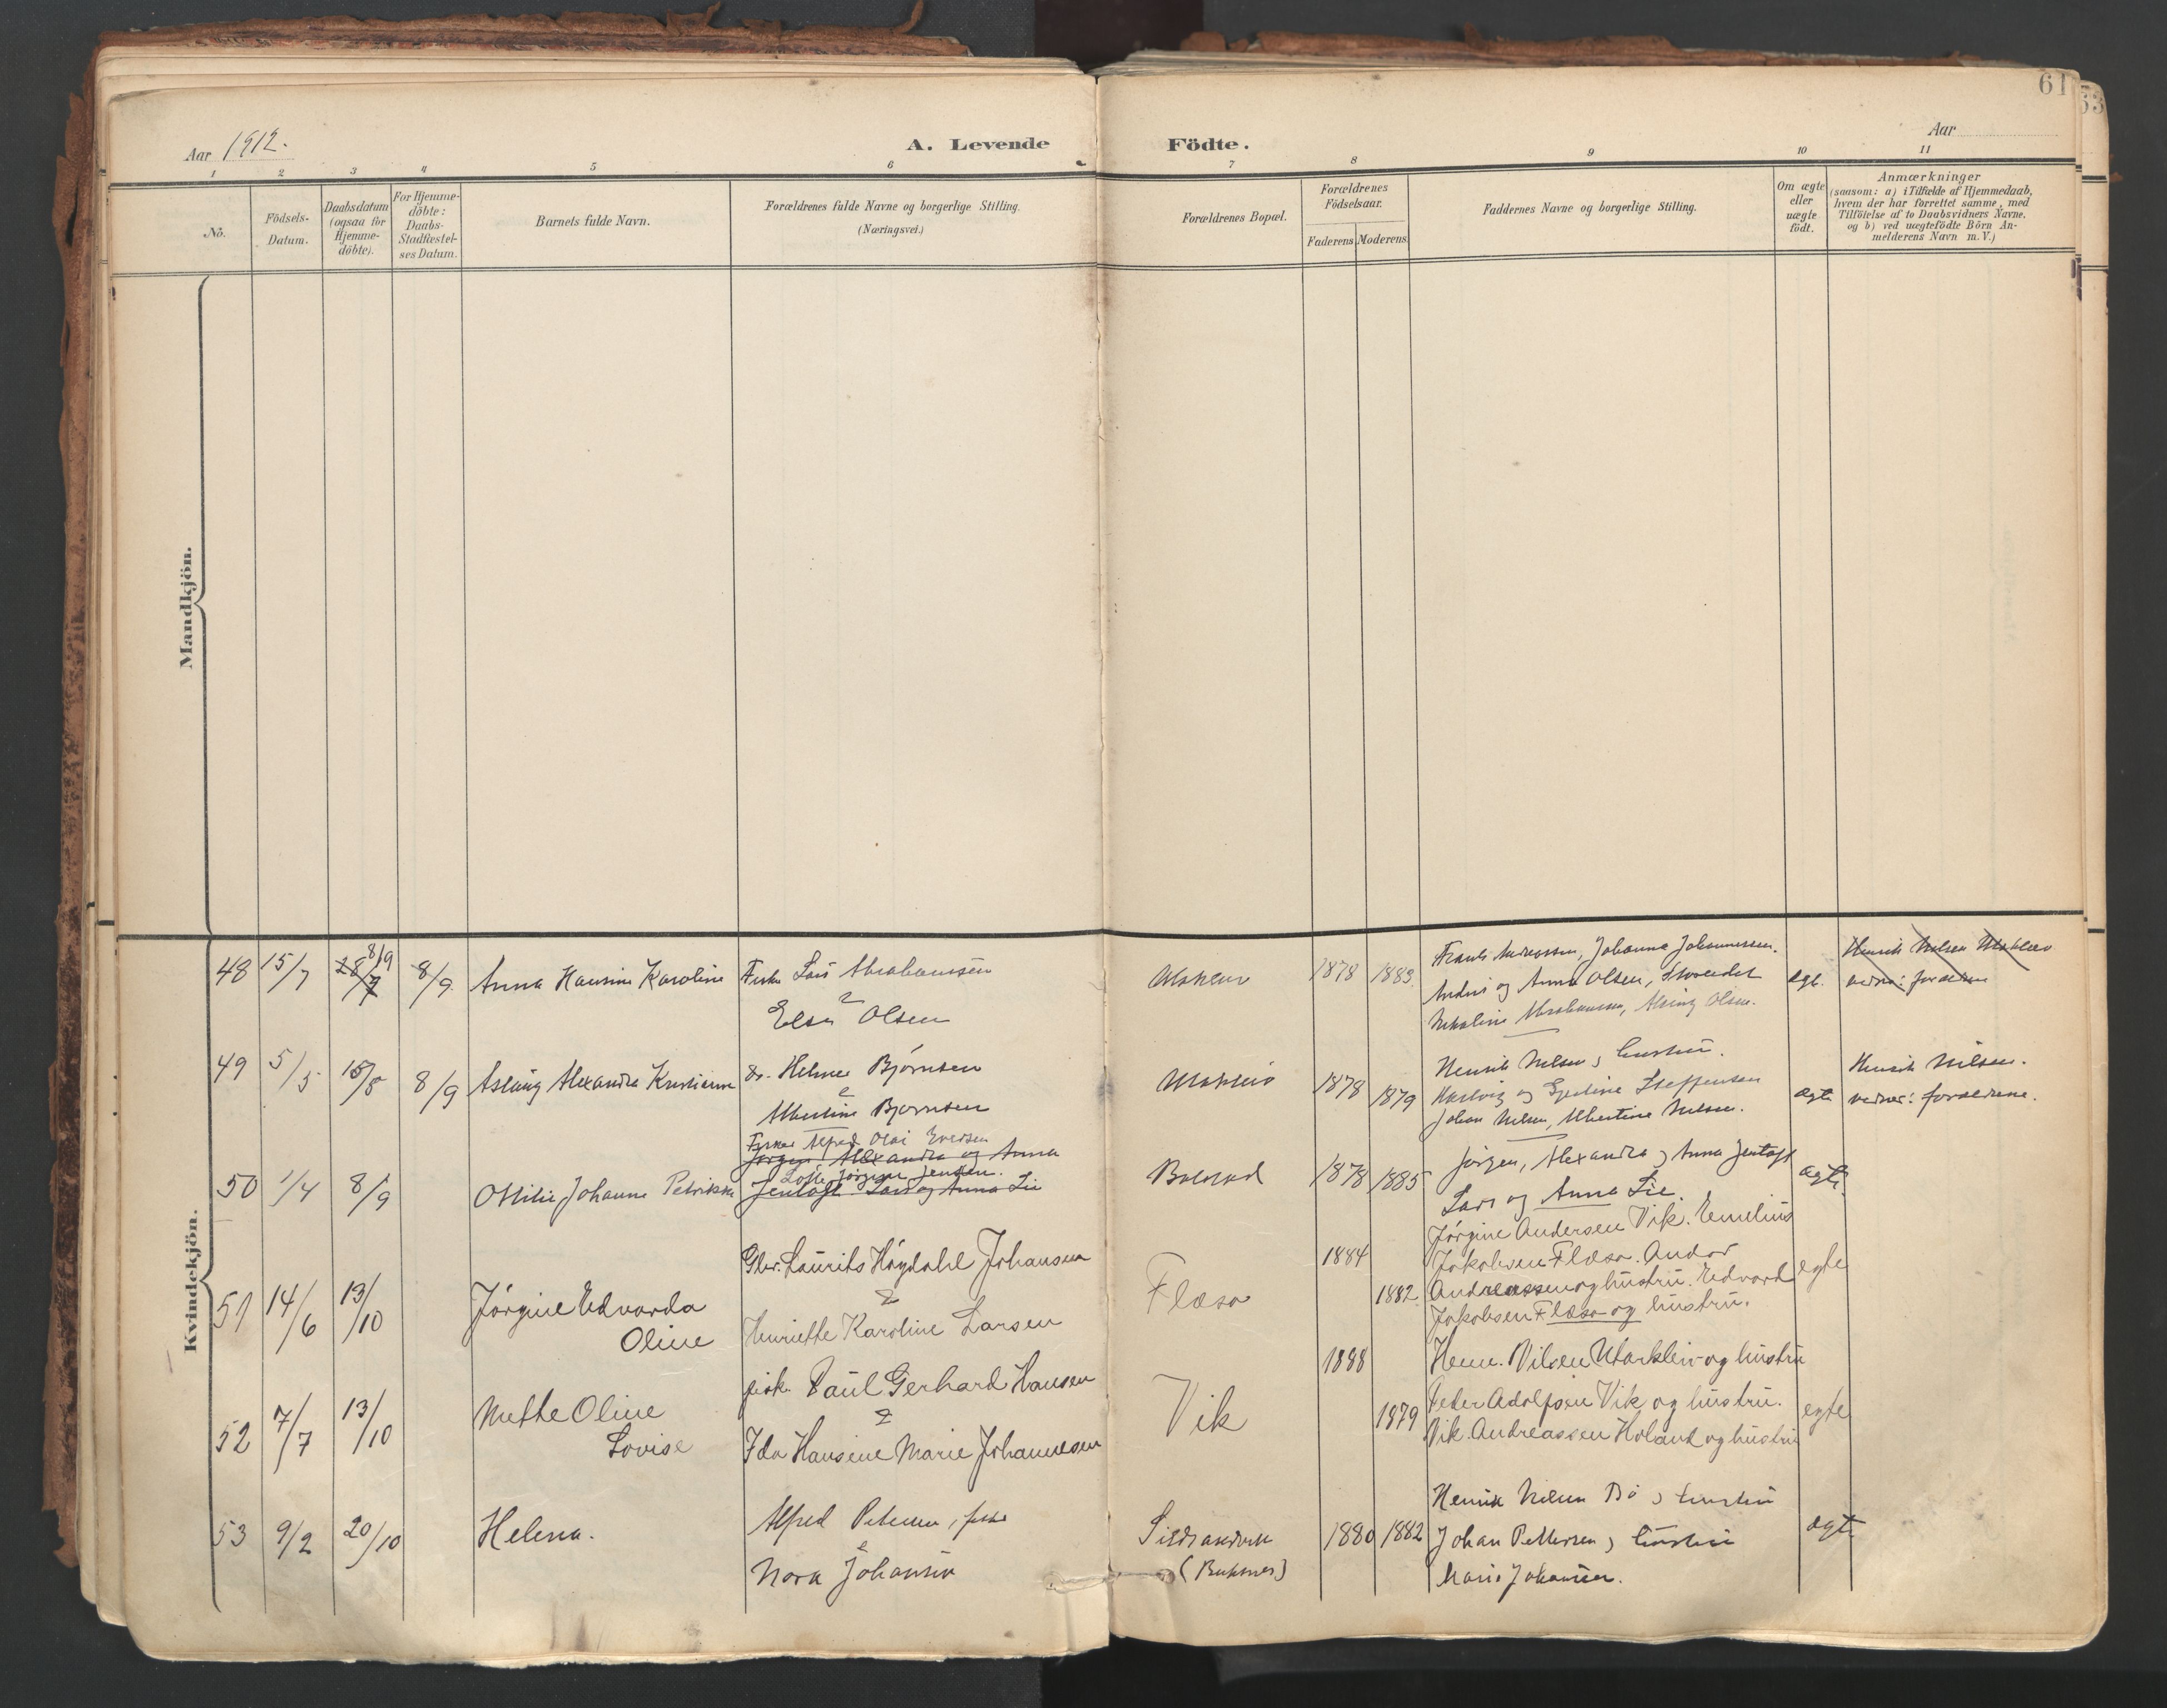 61
53
Aar 1912.
A. Levende Födte.
Aar
1 2 3 4 5 6 7 8 9 10 11
No.
Födsels-
Datum.
Daabsdatum
(ogsaa for
Hjemme-
döbte).
For Hjemme-
döbte:
Daabs-
Stadfæstel-
ses Datum.
Barnets fulde Navn.
Forældrenes fulde Navne og borgerlige Stilling.
(Næringsvei.)
Forældrenes Bopæl.
Forældrenes
Födselsaar.
Faderens Moderens
Faddernes Navne og borgerlige Stilling.
Om ægte
eller
uægte
födt.
Anmærkninger
(saasom: a) i Tilfælde af Hjemmedaab,
hvem der har forrettet samme, med
Tilföielse af to Daabsvidners Navne.
og b) ved uægtefödte Börn An-
melderens Navn m. V.)
Mandkjön.
Kvindekjön.
48 15/7 28/7 8/9 8/9 Anna Hansine Karoline
Lars Abrahamsen
&
Elsa Olsen
1878 1883
Frants Andreassen, Johanna Johannessen.
og Anna Olsen,
Abrahamsen, Olsen.
egt.
Henrik Nelsen
49 5/5 15/5 8/9 Aslaug Alexandra Kristianne
Helmer Bjørnsen
&
Albertine Bjørnsen
1878 1879
Henrik Nilsen & hustru.
Hartvig og Steffensen
Johan Nilsen, Albertine Nilsen.
ægte
Henrik Nilsen.
vidner: forældrene.
50 1/4 8/9 Ottilie Johanne Petrikke
Fisker Alfred Olai Evensen
Jørgen, Alexandra og Anna
Lotte Jørgine Jensen.
Jentoft Lars og Anna Lie
1878 1885
Jørgen, Alexandra & Anna Jentoft
Lars og Anna Lie.
ægte.
51 14/6 13/10 Jørgine Edvarda
Oline
Gbr. Laurits Høydahl Johansen
&
Henriette Karoline Larsen
Flæsa
1884
1882
Jørgine Andersen Vik. Emelius
Jakobsen Flæsa. Andor
Andreassen og hustru. Edvard
Jakobsen Flæsa og hustru.
egte
52 7/7 13/10 Mette Oline
Lovise
fisk. Paul Gerhard Hansen
&
Ida Hansine Marie Johannesen
Vik
1888
1879
Henr. Nilsen Utakleiv og hustru
Peder Adolfsen Vik og hustru.
Vik. Andreassen Holand og hustru
egte
53 9/2 20/10 Helena.
Alfred Petersen,
&
Nora Johansen
(Buksnes)
1880 1882
Henrik Nilsen Bø & hustru
Johan Pettersen & hustru
Marie Johansen.
ægte